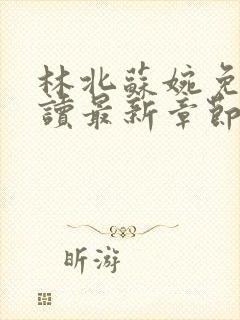 林北蘇婉免
讀最新章節
昕游